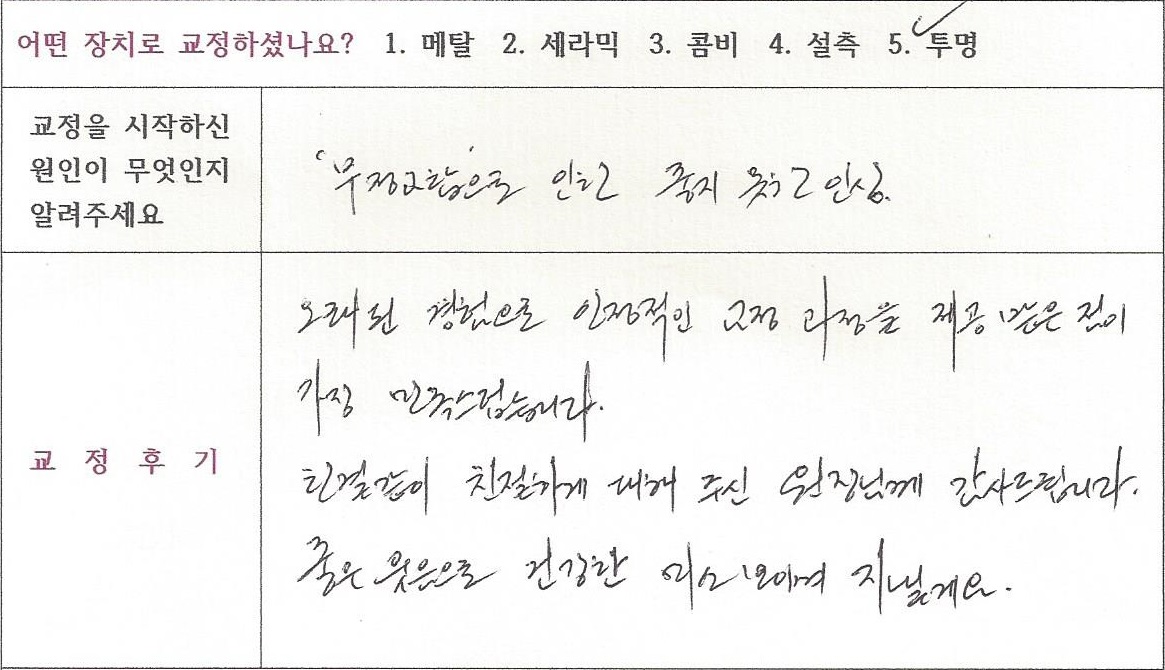 어떤 장치로 교정하셨나요? 1. 메탈 2. 세라믹 3. 콤비 4. 설측 5. 투명
교정을 시작하신
원인이 무엇인지
알려주세요
'부정교합'으로 인한 좋지 못한 인상.
오래된 경험으로 안정적인 교정 과정을 제공 받은 점이
가장 만족스럽습니다.
교 정 후 기
한결같이 친절하게 대해 주신 원장님께 감사드립니다.
좋은 웃음으로 건강한 미소 보이며 지낼게요.